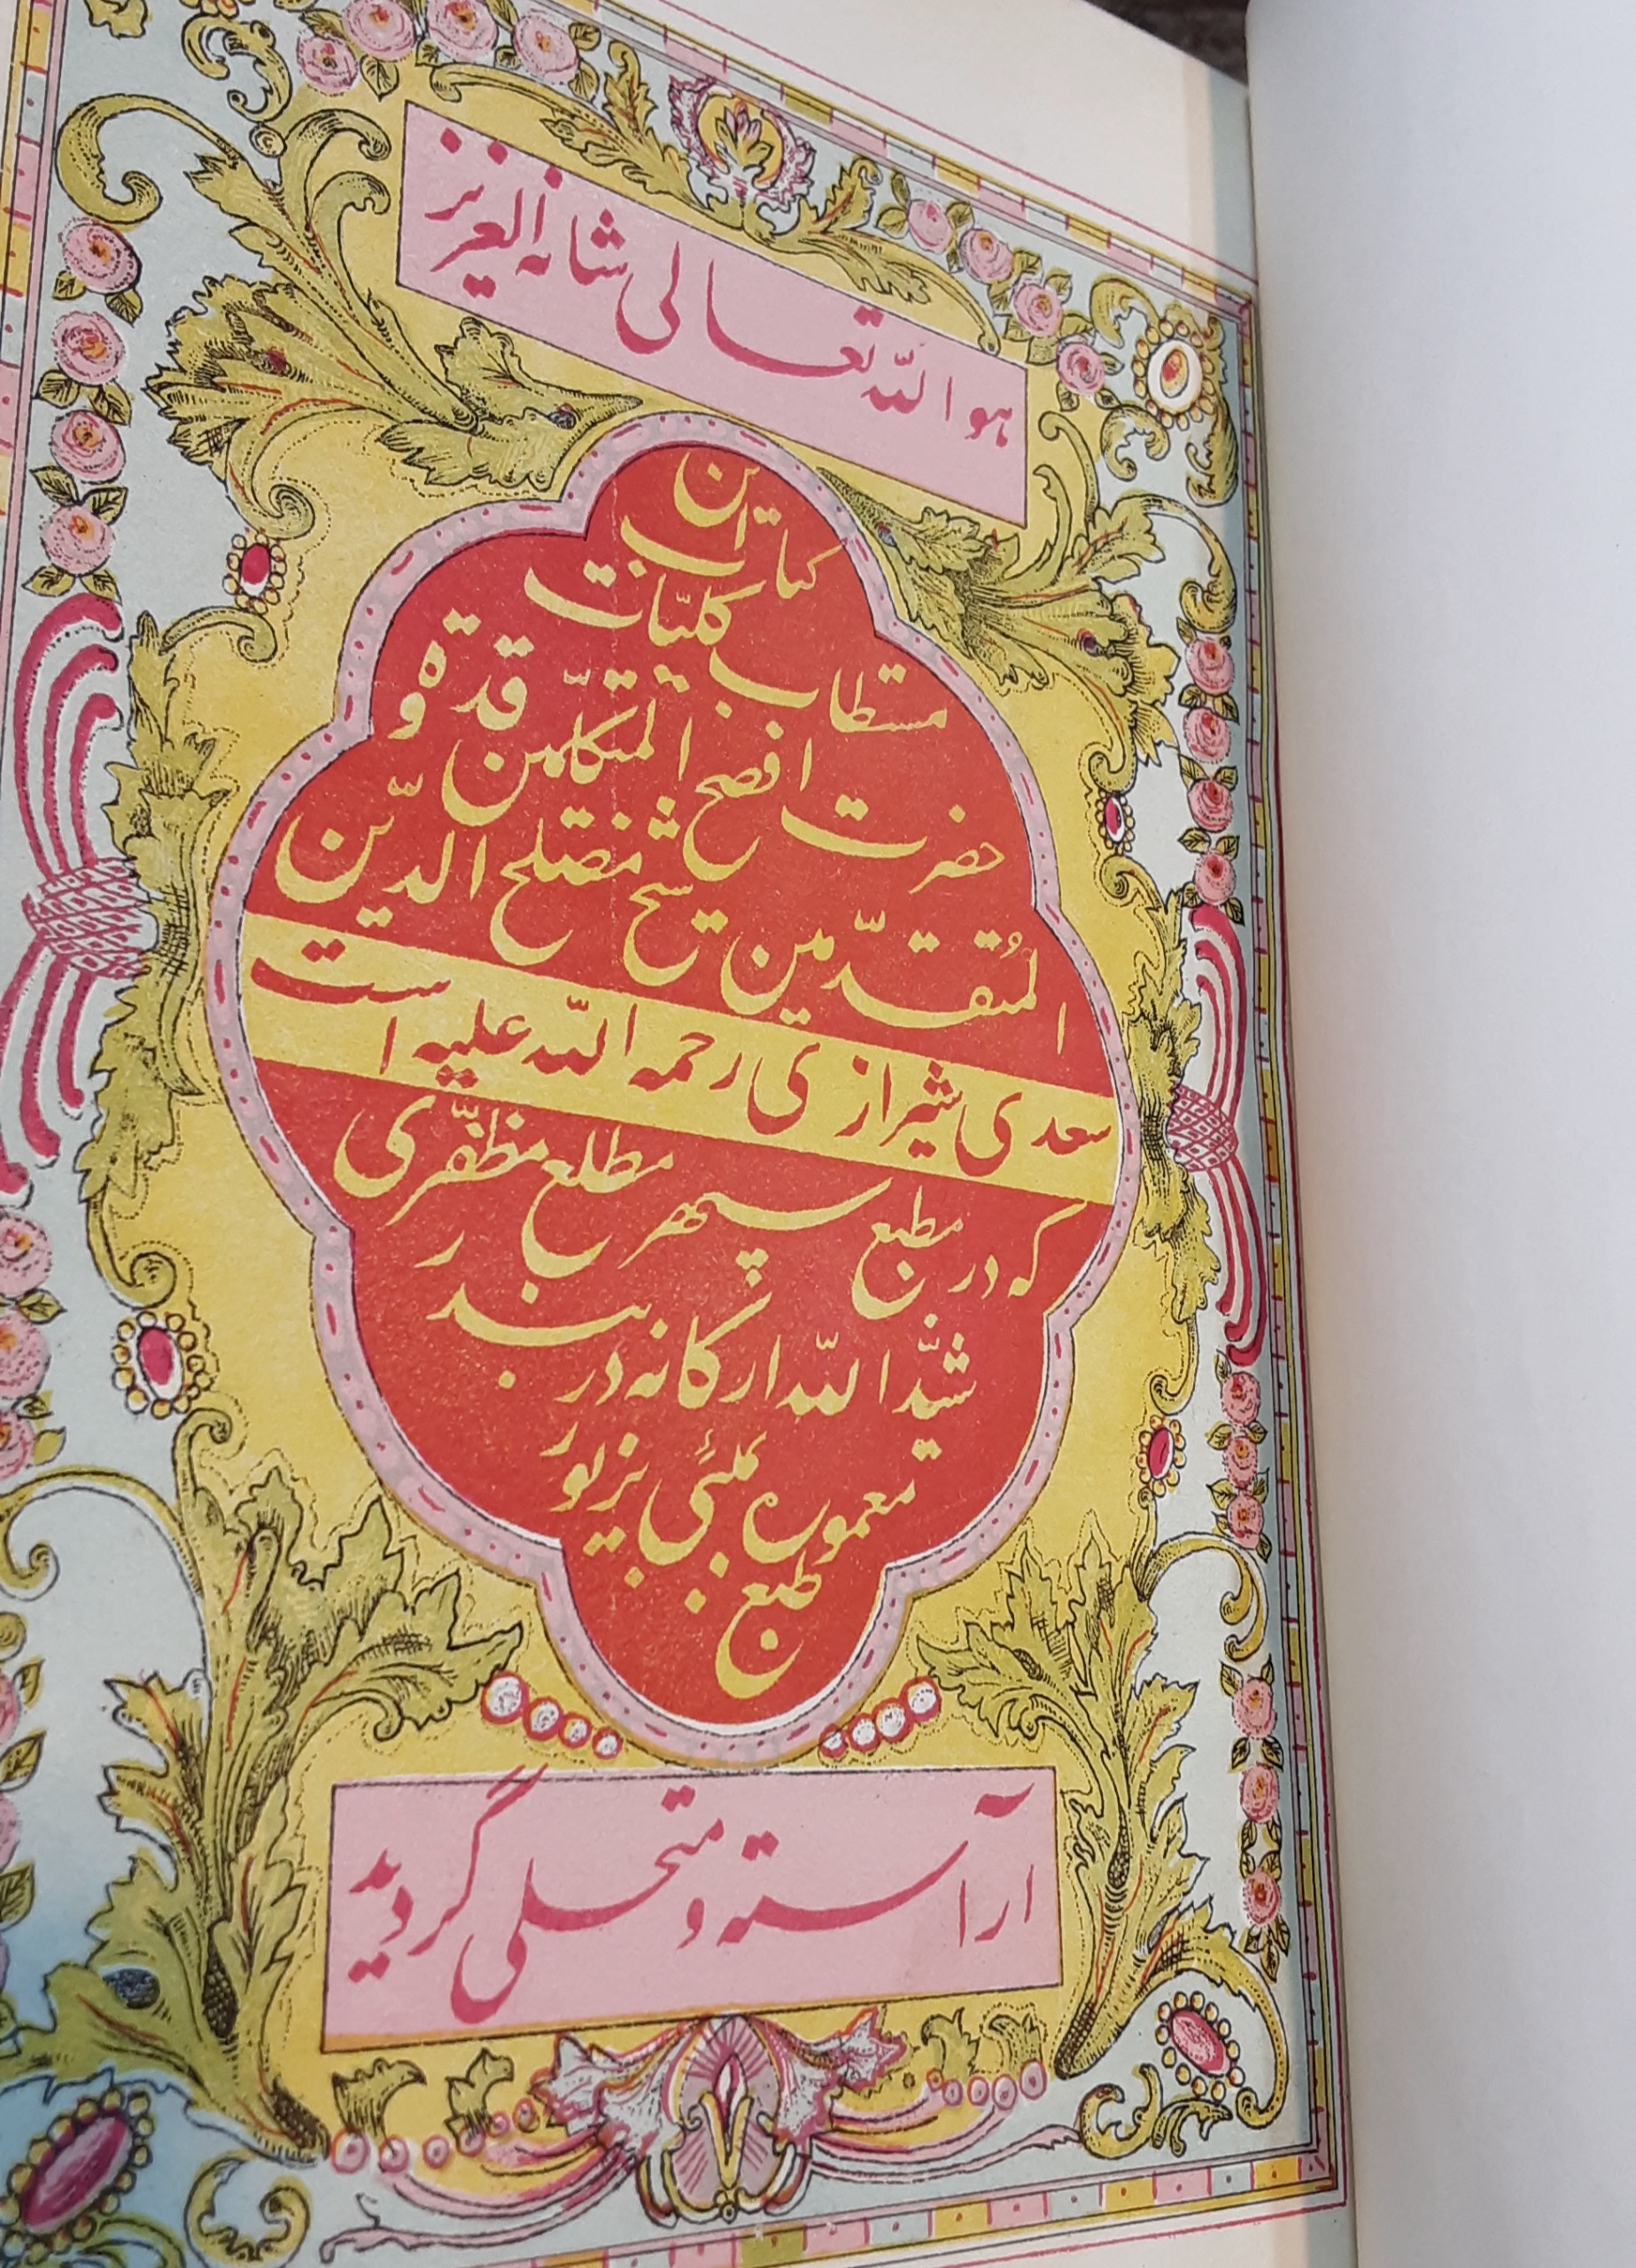 هو الله تعالی شانه العزیز
این
کتاب
مستطاب کلیّات
حضرت افصح المتکلّمین قدوة
المُتقدّمین شیخ مصلح الدّین
سعدی شیرازی رحمه الله علیه است
که در مطبع سپهر مطلع مظفّری
شیّد الله ارکانه در بندر
معموره بمبئی بزیور
طبع
آراسته و متحلی گردید